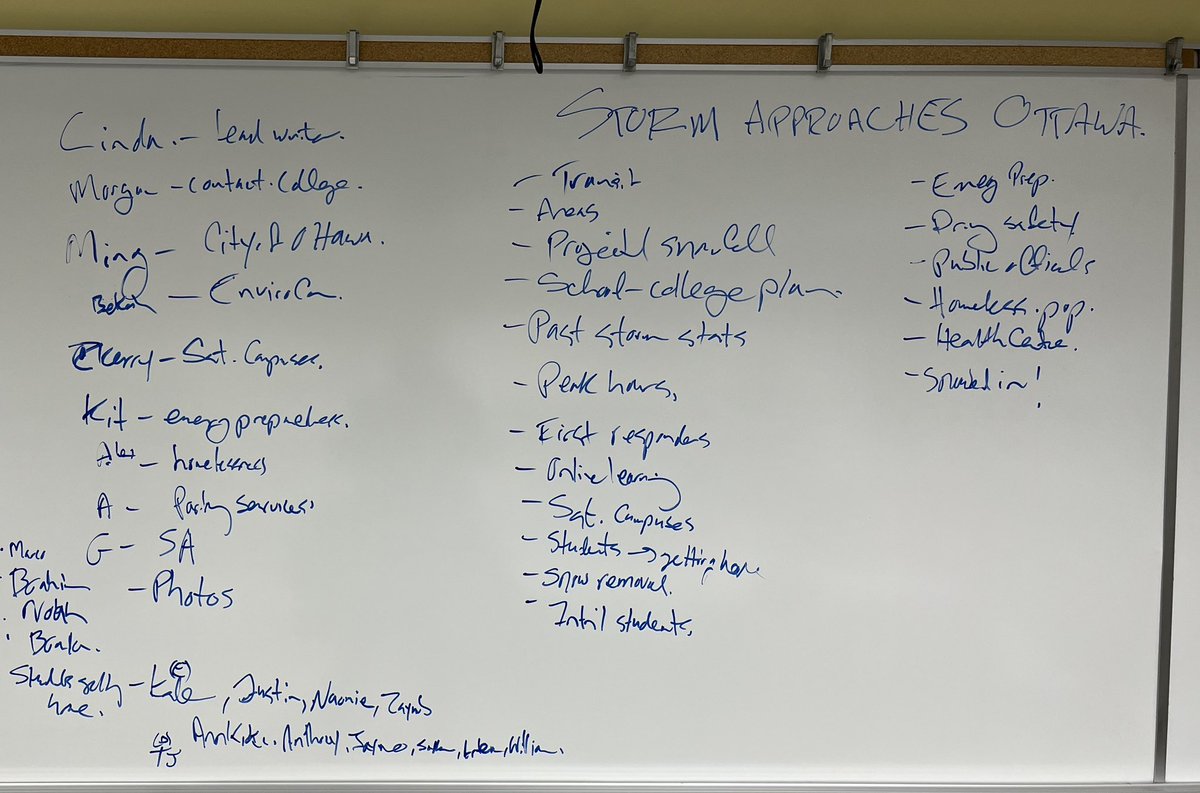 STORM APPROACHES OTTAWA.
Cinda. - lead writer.
Morgan - contact. College.
Ming - City. of Ottawa.
- EnviroCan.
Kerry - Sat. Campuses.
Kit - energ
Alex - homelessness
A - Parking services
G - SA
- Photos
Marco
Brahim
Students getting home. - Kate, Justin, Naomie, Zaynab
TJ Anthony, William.
- Transit
- Areas
- Projected snowfall
- School-college plan.
- Past storm stats
- Peak hours,
- First responders
- Online learning
- Sat. Campuses
- Students → getting home
- Snow removal.
- Intn'l students,
- Emerg Prep.
- Driving safety
- Public officials
- Homeless. pop.
- Health Centre.
- Snowed in!